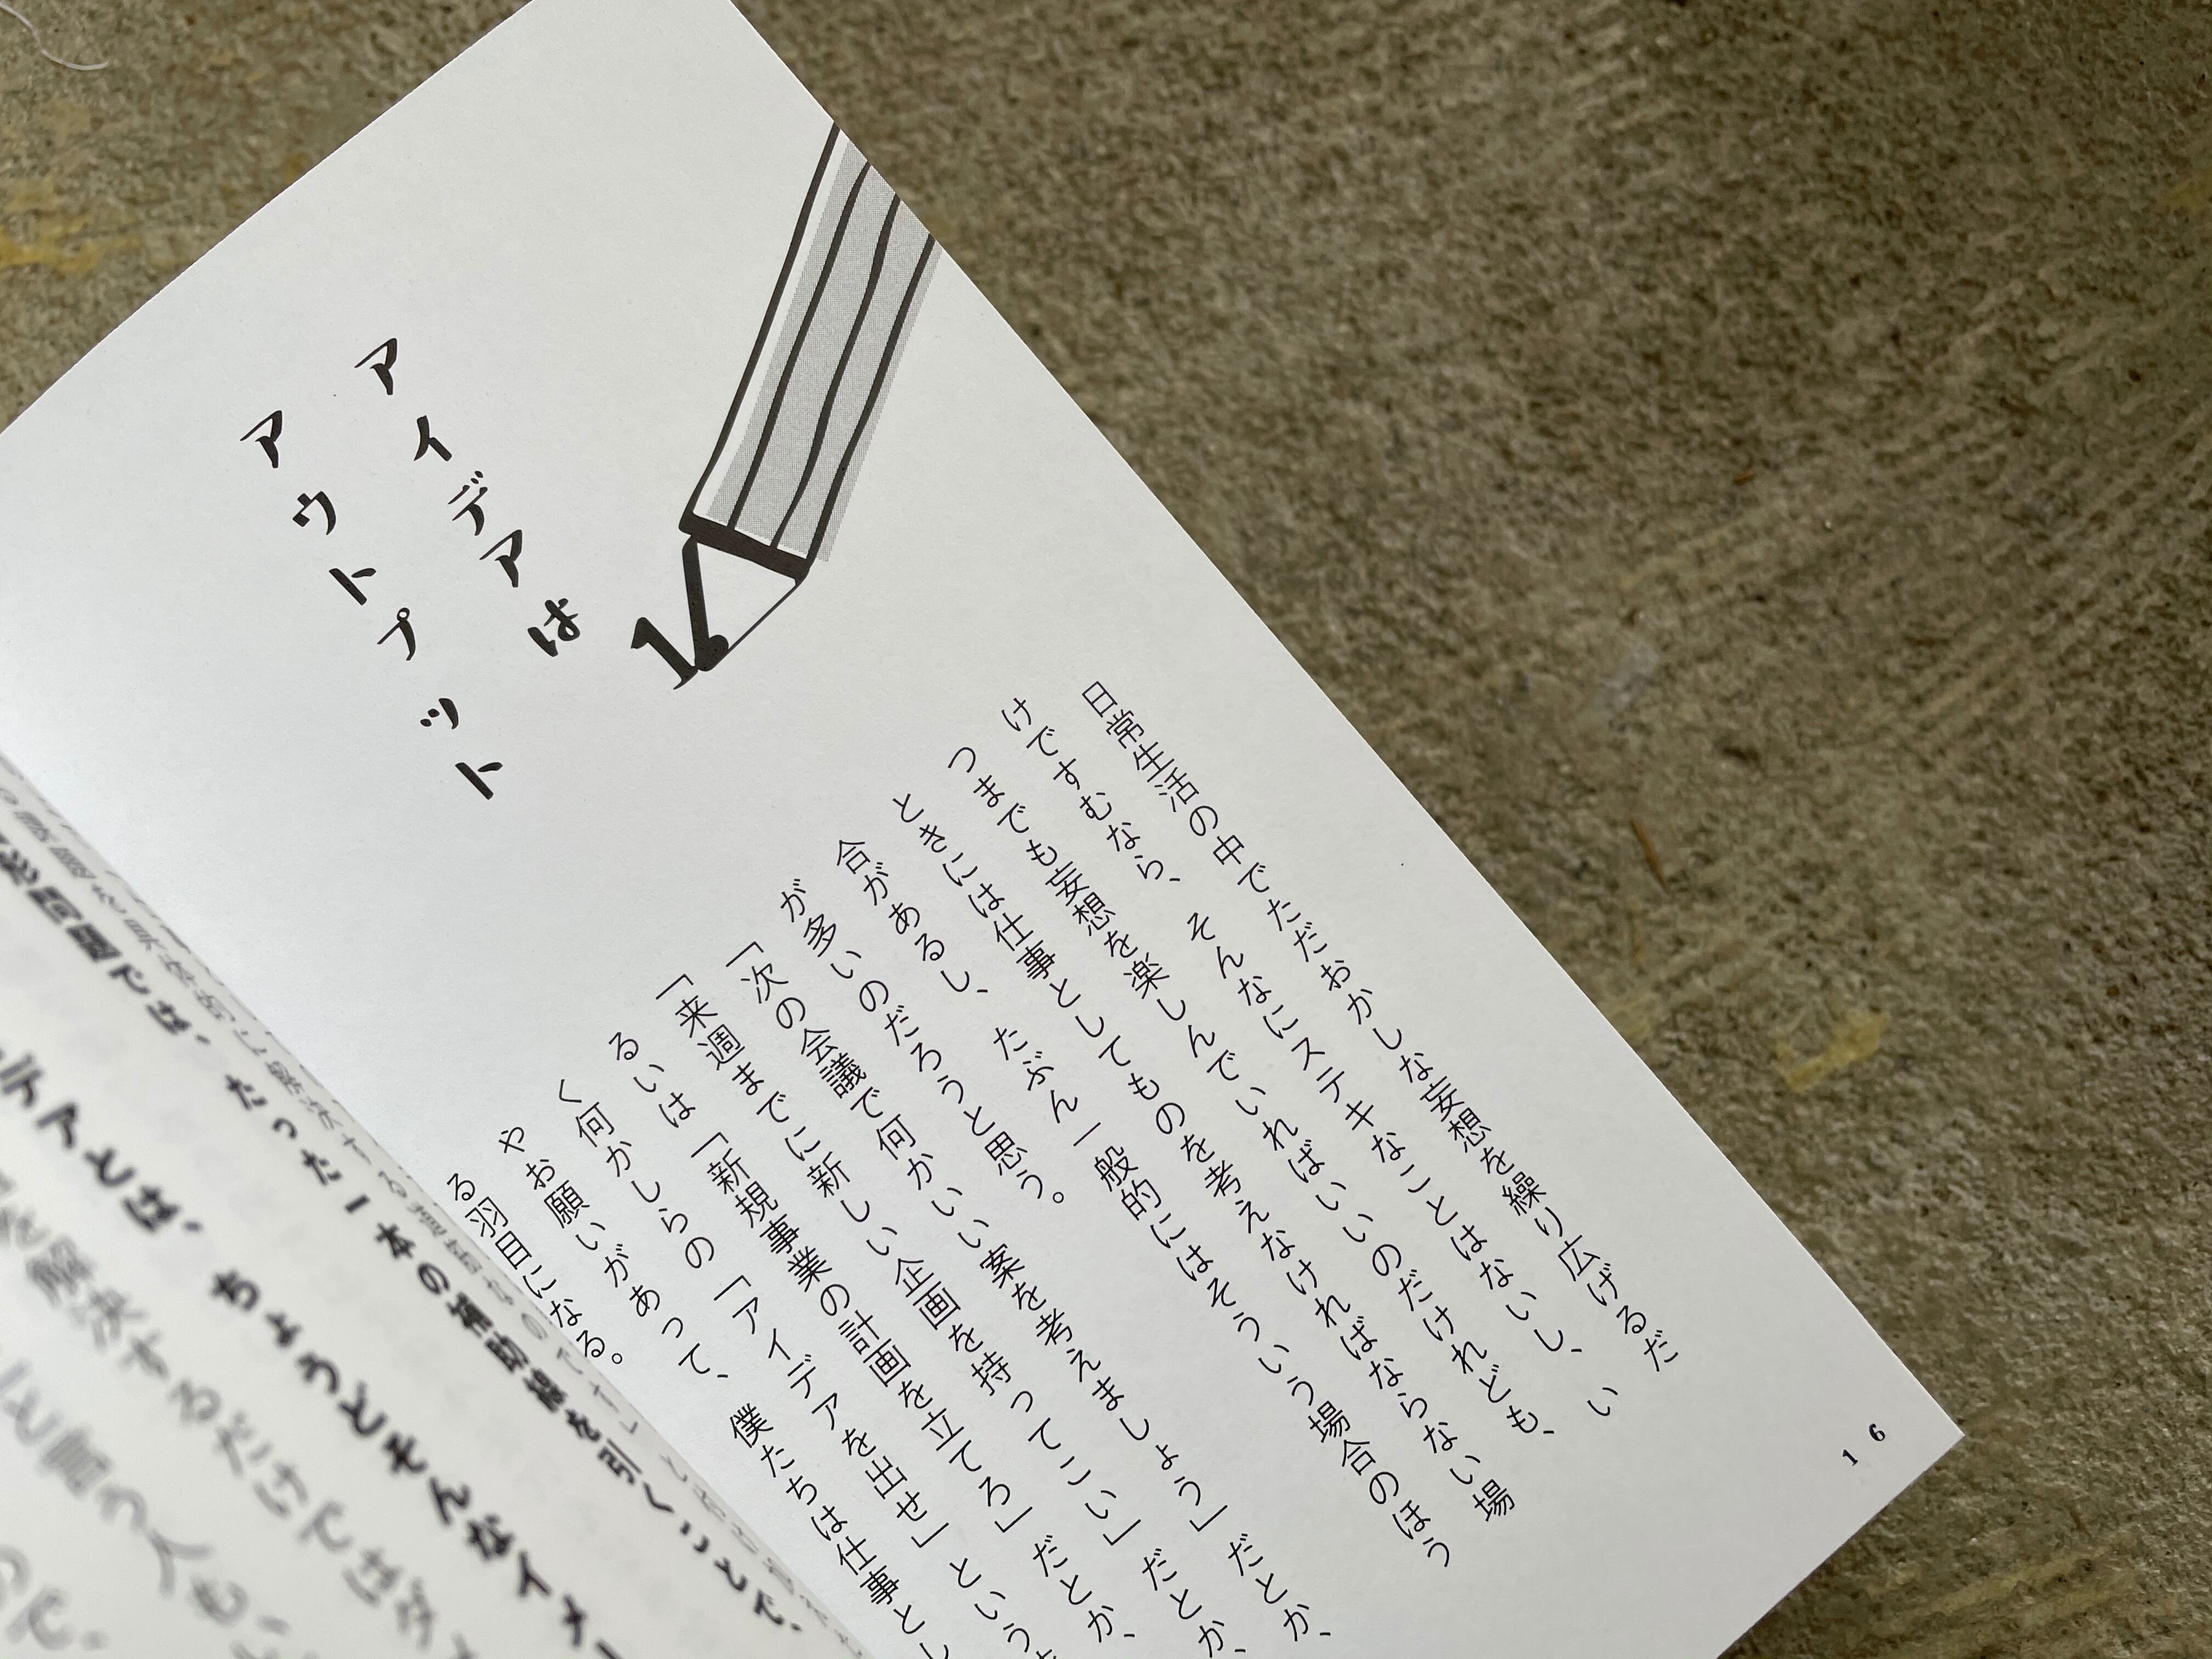 16
1
アイデアは
アウトプット
日常生活の中でただおかしな妄想を繰り広げるだ
けですむなら、そんなにステキなことはないし、い
つまでも妄想を楽しんでいればいいのだけれども、
ときには仕事としてものを考えなければならない場
合があるし、たぶん一般的にはそういう場合のほう
が多いのだろうと思う。
「次の会議で何かいい案を考えましょう」だとか、
「来週までに新しい企画を持ってこい」だとか、
るいは「新規事業の計画を立てろ」だとか、
く何かしらの「アイデアを出せ」という
やお願いがあって、僕たちは仕事とし
る羽目になる。
問題では、たった一本の補助線を引くことで、
デアとは、ちょうどそんなイメー
を解決するだけではダメ
と言う人も